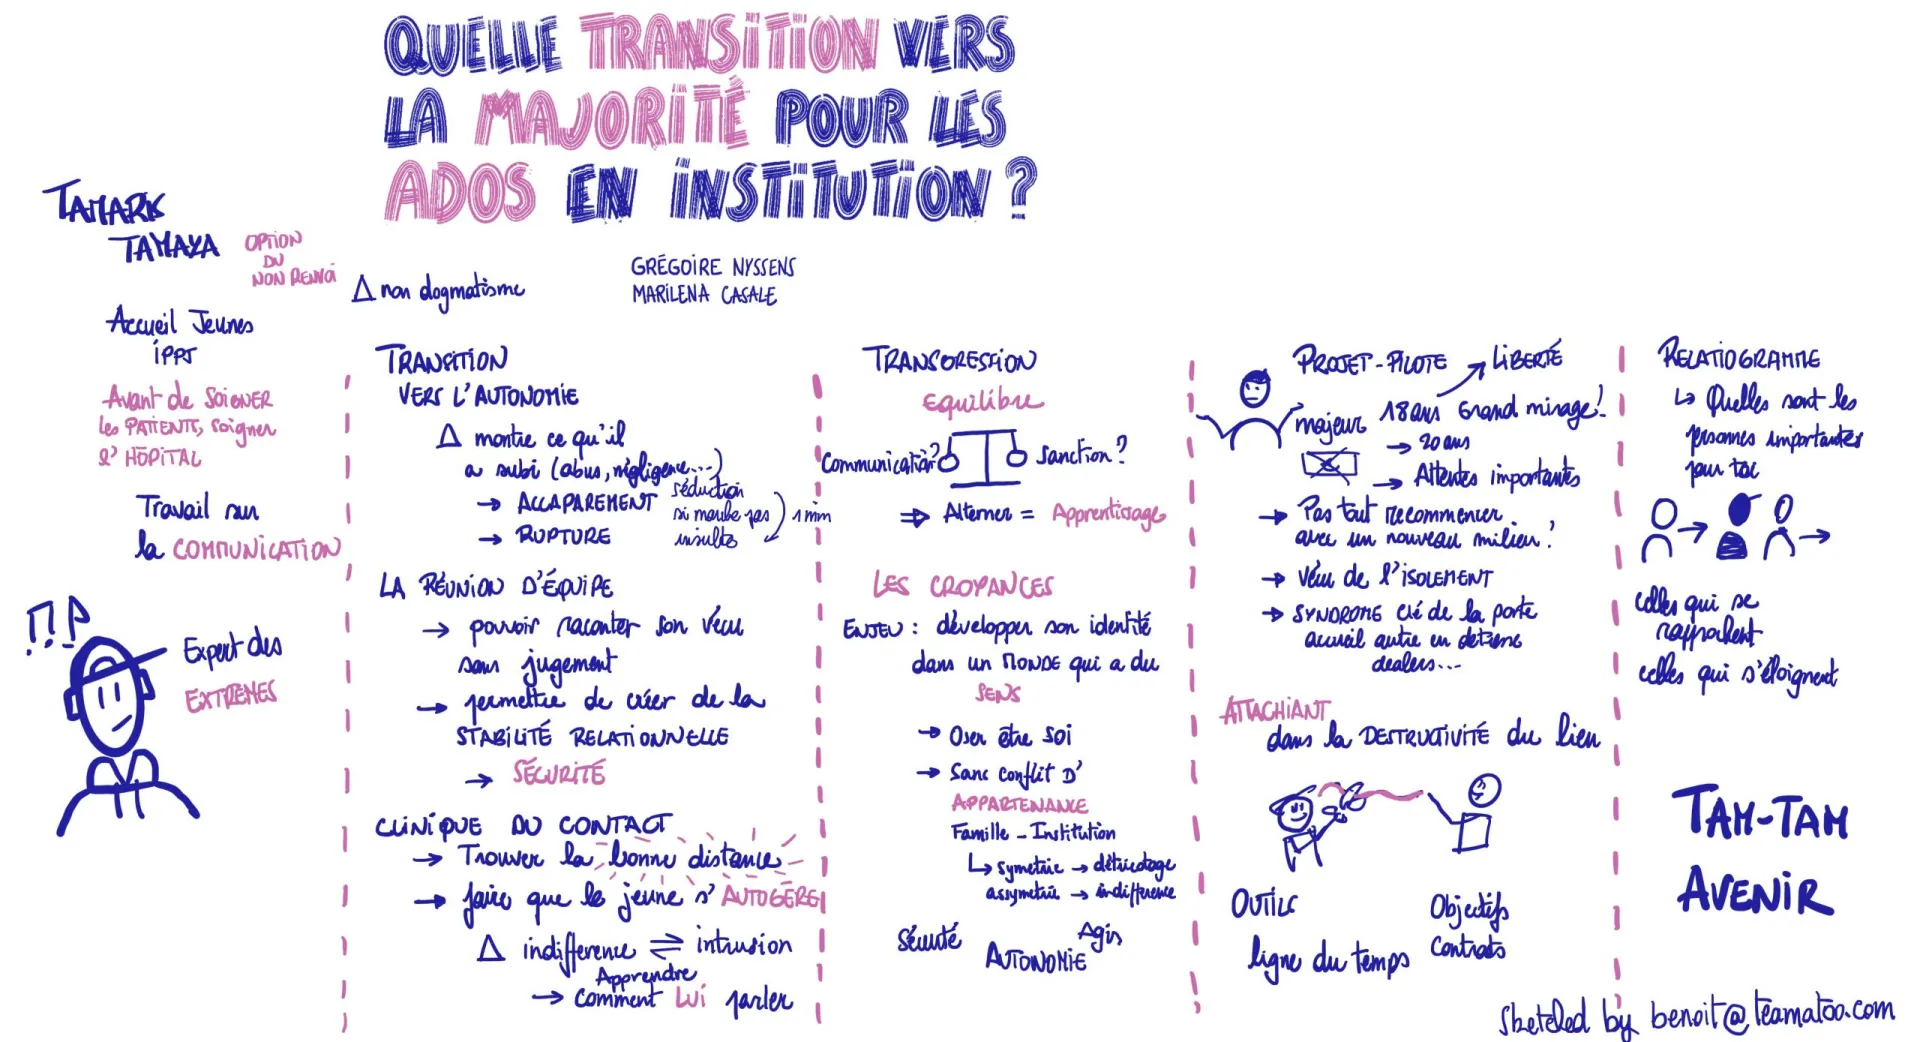 QUELLE TRANSITION VERS
LA MAJORITÉ POUR LES
ADOS EN INSTITUTION ?
GRÉGOIRE NYSSENS
MARILENA CASALE
TAMARIS
TAMAYA
OPTION
DU
NON RENVOI
Δ non dogmatisme
Accueil Jeunes
IPPJ
Avant de SOIGNER
les PATIENTS, soigner
l'HÔPITAL
Travail sur
la COMMUNICATION
Expert des
EXTRÊMES
TRANSITION
VERS L'AUTONOMIE
Δ montre ce qu'il
a subi (abus, négligence...)
→ ACCAPAREMENT
→ RUPTURE
séduction
si marche pas
insultes
1 min
LA RÉUNION D'ÉQUIPE
→ pouvoir raconter son vécu
sans jugement
→ permettre de créer de la
STABILITÉ RELATIONNELLE
→ SÉCURITÉ
CLINIQUE DU CONTACT
→ Trouver la bonne distance
→ faire que le jeune s'AUTOGÈRE
Δ indifférence ⇌ intrusion
Apprendre
→ comment LUI parler
TRANSGRESSION
Equilibre
Communication?
Sanction?
⇒ Alterner = Apprentissage
LES CROYANCES
ENJEU : développer son identité
dans un MONDE qui a du
SENS
→ Oser être soi
→ Sans conflit D'
APPARTENANCE
Famille - Institution
↳ symétrie → détricotage
assymétrie → indifférence
Sécurité
AUTONOMIE
Agir
PROJET-PILOTE
LIBERTÉ
majeur
18 ans Grand mirage!
→ 20 ans
→ Attentes importantes
→ Pas tout recommencer
avec un nouveau milieu!
→ Vécu de l'ISOLEMENT
→ SYNDROME clé de la porte
accueil autre en détresse
dealers...
ATTACHIANT
dans la DESTRUCTIVITÉ du lien
OUTILS
ligne du temps
Objectifs
Contrats
RELATIOGRAMME
↳ Quelles sont les
personnes importantes
pour toi
celles qui se
rapprochent
celles qui s'éloignent
TAM-TAM
AVENIR
sketched by benoit@teamatoo.com